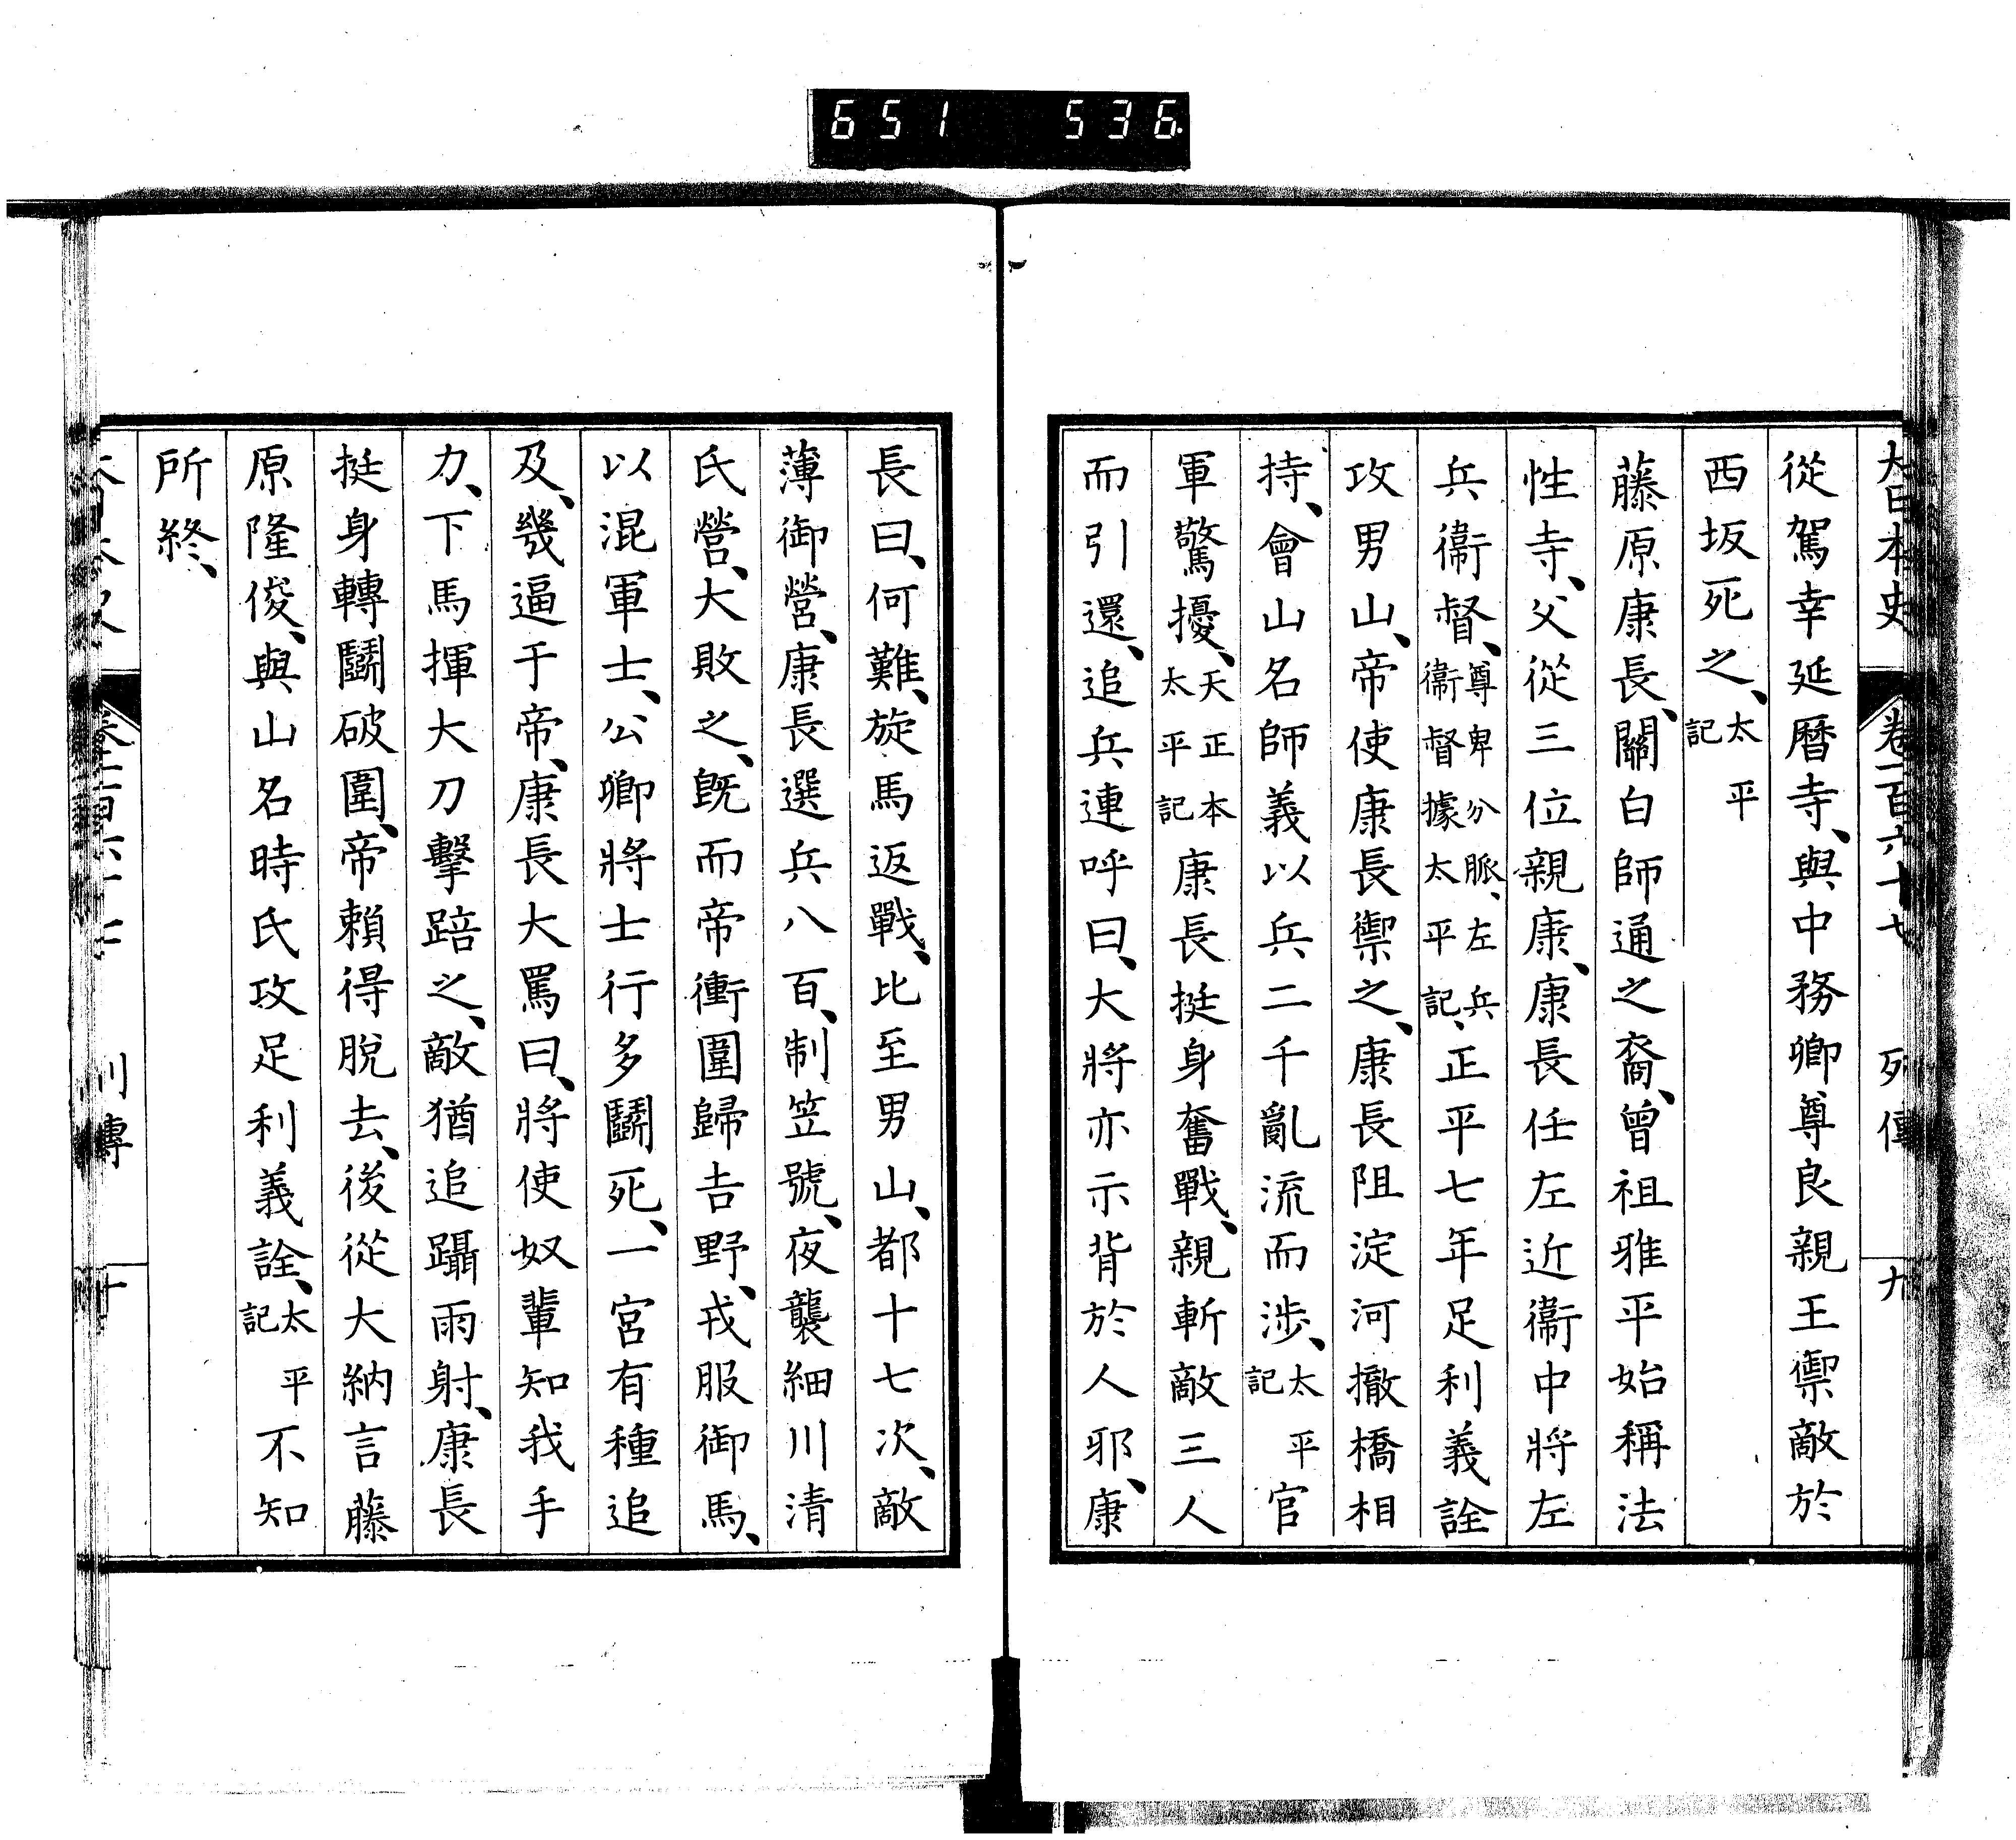 651 536
大日本史 卷一百六十七 列傳 九
從駕幸延曆寺、與中務卿尊良親王禦敵於
西坂死之、太平記
藤原康長、關白師通之裔、曾祖雅平始稱法
性寺、父從三位親康、康長任左近衞中將左
兵衞督、尊卑分脈、左兵衞督據太平記、正平七年足利義詮
攻男山、帝使康長禦之、康長阻淀河撤橋相
持、會山名師義以兵二千亂流而涉、太平記官
軍驚擾、天正本太平記康長挺身奮戰、親斬敵三人
而引還、追兵連呼曰、大將亦示背於人邪、康
長曰、何難、旋馬返戰、比至男山、都十七次、敵
薄御營、康長選兵八百、制笠號、夜襲細川清
氏營、大敗之、既而帝衝圍歸吉野、戎服御馬、
以混軍士、公卿將士行多鬭死、一宮有種追
及、幾逼于帝、康長大罵曰、將使奴輩知我手
力、下馬揮大刀擊踣之、敵猶追躡雨射、康長
挺身轉鬭破圍、帝賴得脫去、後從大納言藤
原隆俊、與山名時氏攻足利義詮、太平記不知
所終、
列傳 十